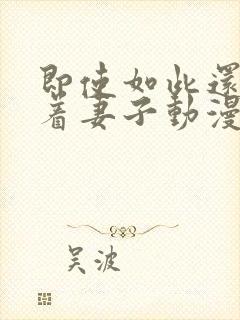 即使如此還
着妻子動漫
吴波